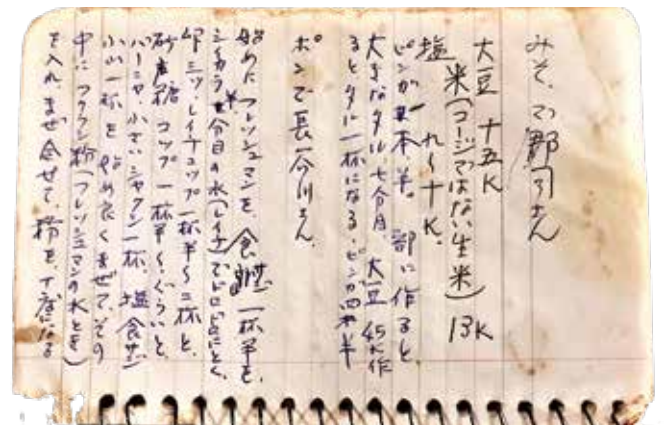 みそ、の郡司さん
大豆 十五K
米(コージではない生米) 13K
塩 九〜十K。
ビンが 本、半。 部に作ると
大きなタル、七分目、大豆 45K作
るとタルに一杯になる、ビンが四本半
ポンで長谷川さん、
始めに フレッシュマンを、食 一杯半を、
シイカラ 半分目の水(レイナ)でドロドロにとく、
卵三ツ、レイチコップ一杯半〜二杯と、
砂唐糖 コップ 一杯半〜、ぐらいと、
バーニャ、小さいシャクシ一杯、塩食サジ
小山一杯を 始め良くまぜて、その
中に フクラシ粉(フレッシュマンの水とき)
を入れ、まぜ合せて、粉を、丁度になる